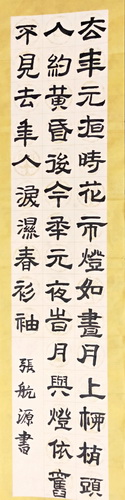 去年元夜時花市燈如晝月上柳梢頭
人約黃昏後今年元夜旹月與燈依舊
不見去年人淚濕春衫袖
張航源書